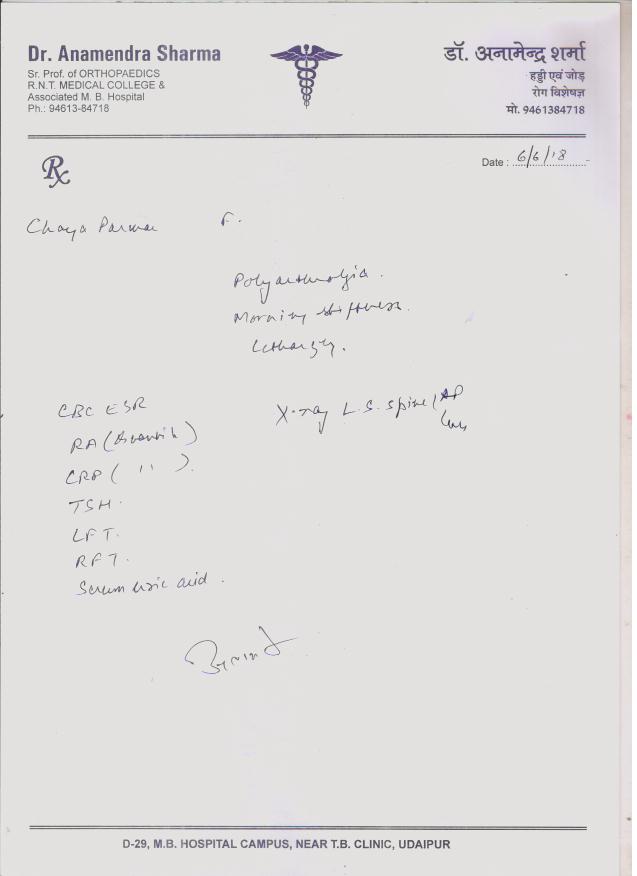 Dr. Anamendra Sharma
Sr. Prof. of ORTHOPAEDICS
R.N.T. MEDICAL COLLEGE &
Associated M. B. Hospital
Ph.: 94613-84718
डॉ. अनामेन्द्र शर्मा
हड्डी एवं जोड़
रोग विशेषज्ञ
मो. 9461384718
Rx
Date : 6/6/18
Chaya Parmar F.
Polyarthralgia.
Morning stiffness.
Lethargy.
CBC ESR
RA (
X-ray L.S. spine AP
CRP ( " ).
TSH.
LFT.
RFT.
Serum uric acid.
D-29, M.B. HOSPITAL CAMPUS, NEAR T.B. CLINIC, UDAIPUR